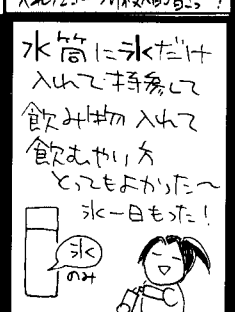 水筒に氷だけ
入れて持参して
飲み物入れて
飲むやり方
とってもよかった〜
氷一日もった!
氷
のみ